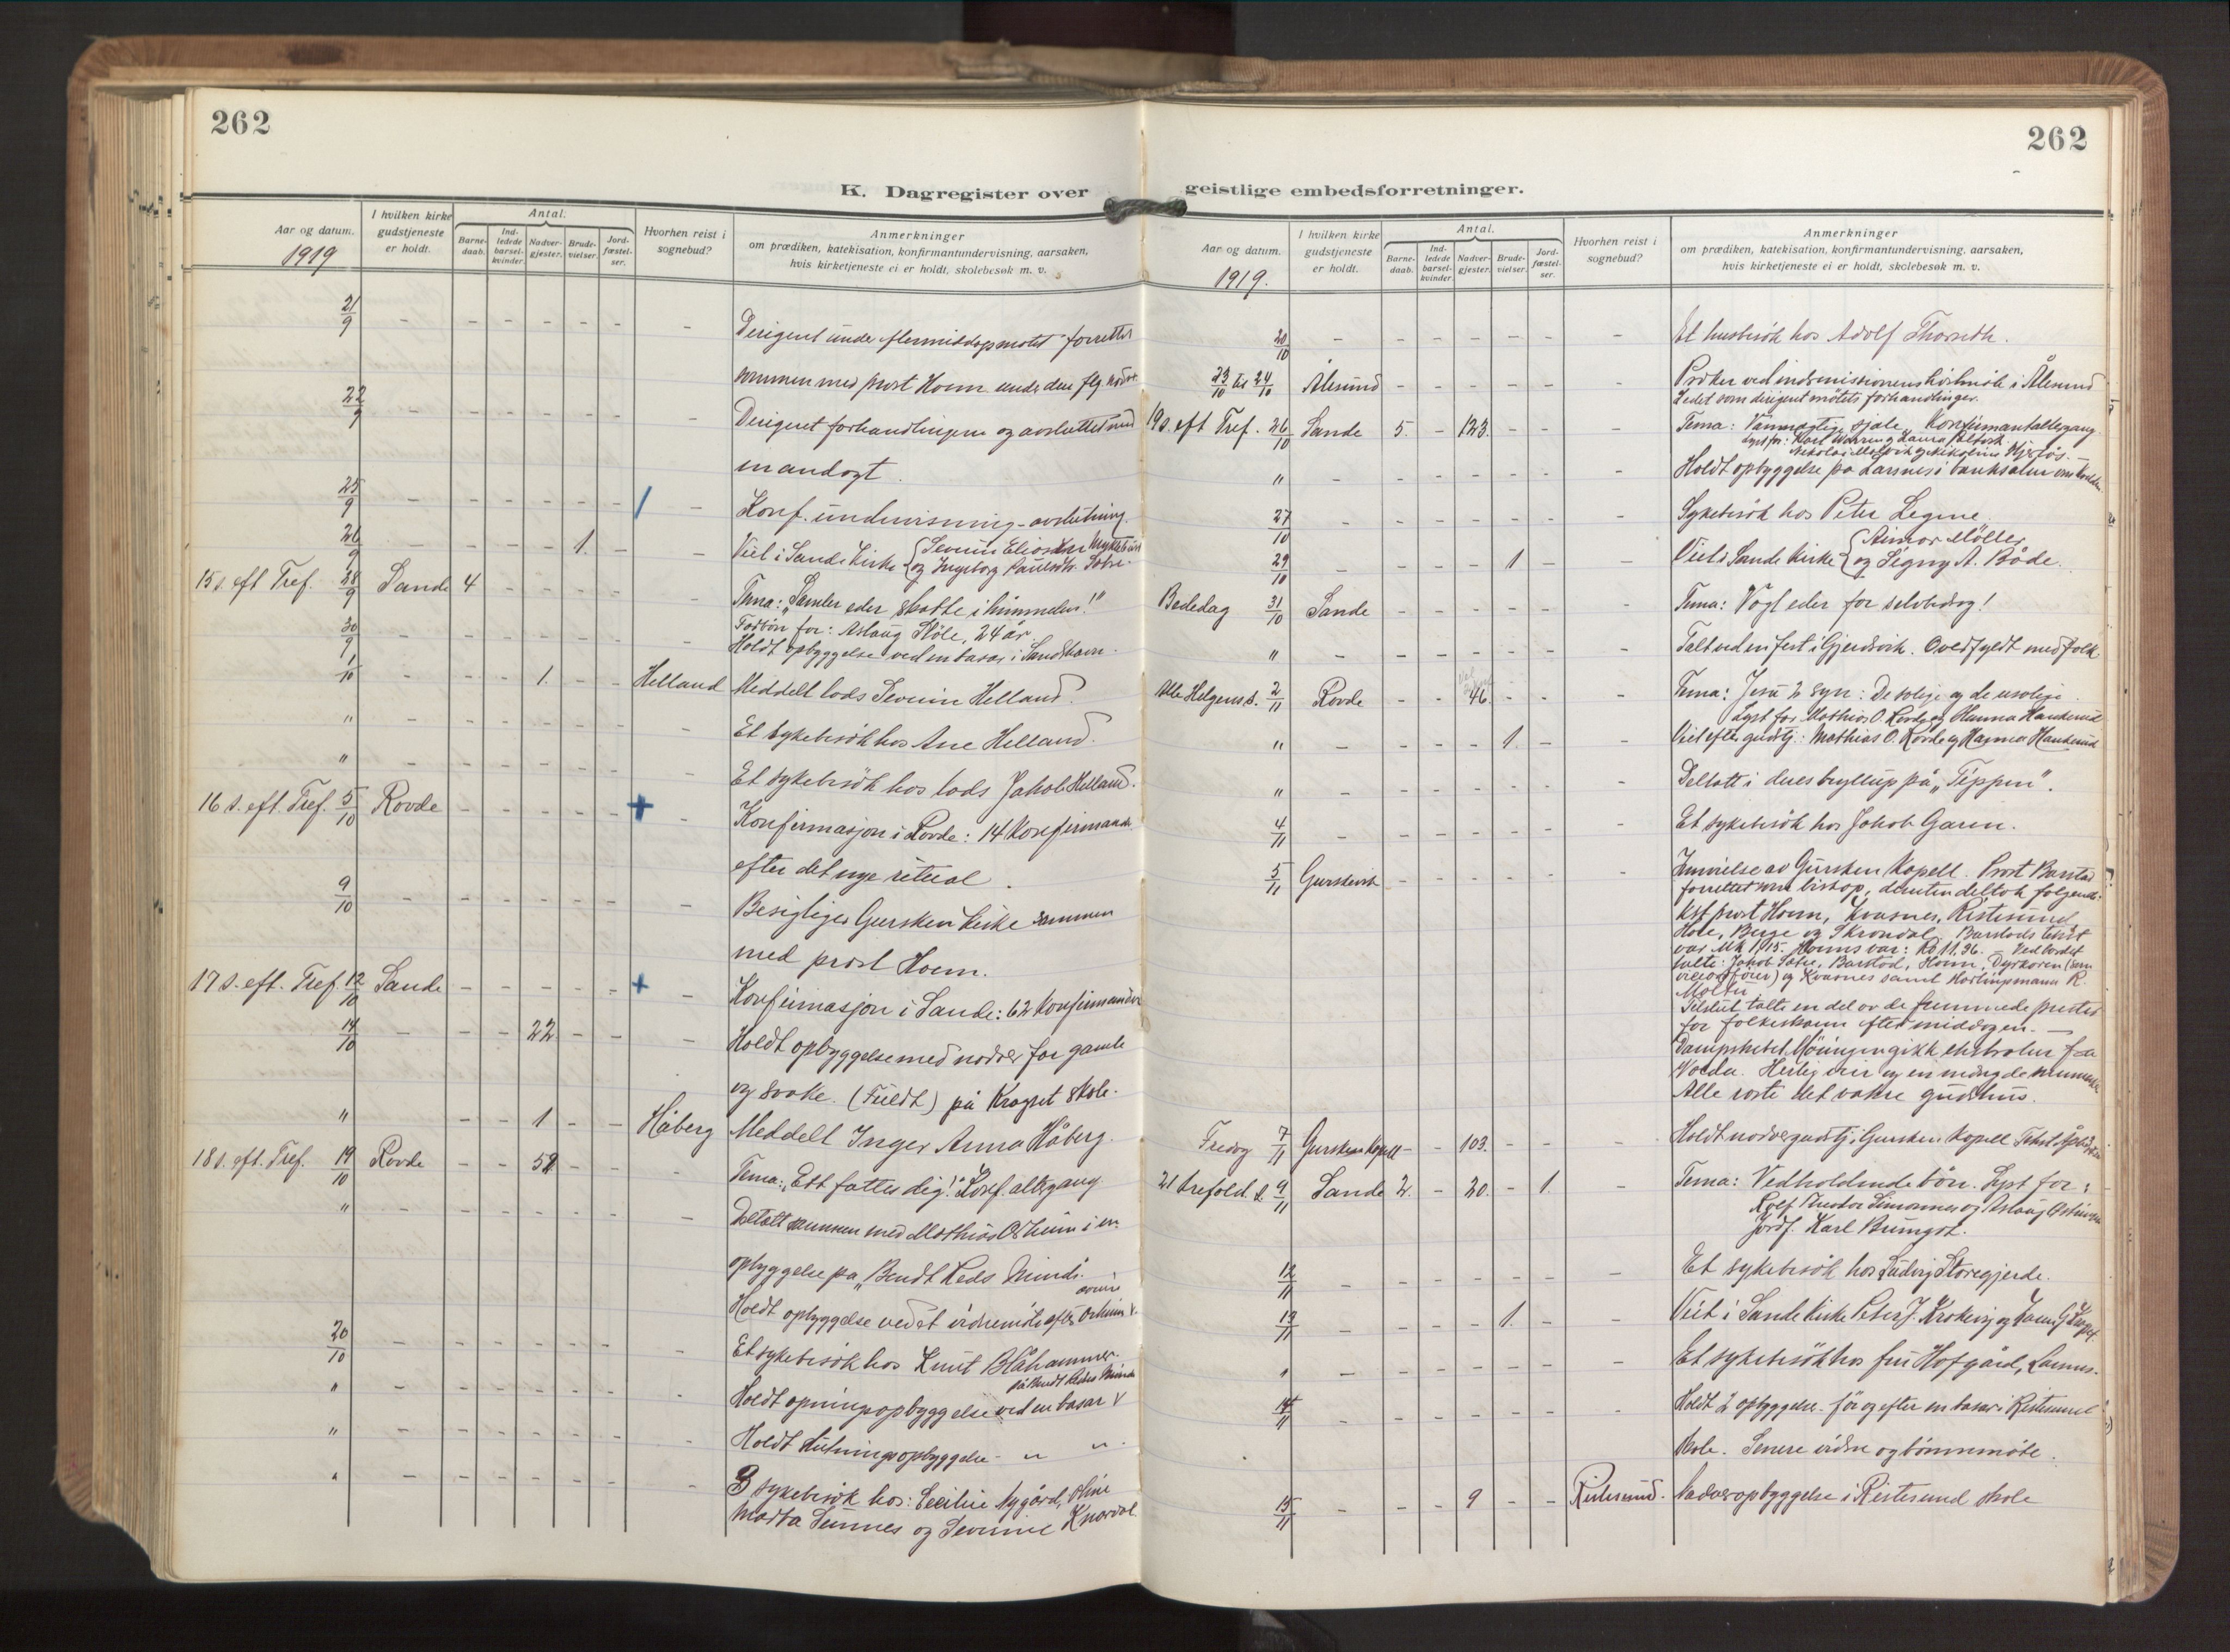 262
262
K. Dagregister over geistlige embedsforretninger.
Aar og datum.
1919
I hvilken kirke gudstjeneste er holdt.
Antal.
Barne-daab.
Ind-ledede barsel-kvinder.
Nadver-gjester.
Brude-vielser.
Jord-fæstel-ser.
Hvorhen reist i sognebud?
Anmerkninger
om prædiken, katekisation, konfirmantundervisning, aarsaken,
hvis kirketjeneste ei er holdt, skolebesøk m. v.
21/9 - - - - - - - Dirigent under eftermiddagsmøtet forrettet
sammen med prost Hoem under den flg.
22/9 - - - - - - - Dirigeret forhandlingene og avsluttet med
en andagt.
25/9 - - - - - - / - Konf. undervisning - avslutning.
26/9 - - - - 1. - - Viet i Sande kirke
og Ingeborg Paulsdtr. Sætre.
15 s. eft Tref. 28/9 Sande 4 - - - - - Tema: "Samler eder skatte i himmelen!"
Forbön for: Aslaug Støle, 24 år.
30/9 - - - - - - - Holdt opbyggelse ved en basar i Sandshavn.
1/10 - - - 1. - - Helland Meddelt lods Severin Helland.
" - - - - - - - Et sykebesök hos Ane Helland.
" - - - - - - - Et sykebesök hos lods Jakob Helland.
16 s. eft. Tref. 5/10 Rovde - - - - - + - Konfirmasjon i Rovde: 14 konfirmander
efter det nye ritual.
9/10 - - - - - - - Besigtiges Gursken kirke sammen
med prost Hoem.
17 s. eft. Tref. 12/10 Sande - - - - - + - Konfirmasjon i Sande: 62 konfirmander
14/10 - - - 22 - - - Holdt opbyggelse med nadver for gamle
og svake. (Fuldt) på Kragset skole.
" - - 1 - - Håberg Meddelt Inger Anna Håberg.
18 s. eft. Tref. 19/10 Rovde - - 52 - - - Tema: "Ett fattes dig!" Konf. altergang
" - - - - - - Deltatt sammen med Mathias Osheim i en
opbyggelse på "Bendt Leds Minde".
Holdt opbyggelse ved et vidnemöte efter
20/10 - - - - - - - Et sykebesök hos Knut Blåhammer.
på Bendt Ledes Minde
" - - - - - - - Holdt åpningsopbyggelse ved en basar v
" - - - - - - - Holdt slutningsopbyggelse - " "
" - - - - - - - 3 sykebesök hos: Cecilie Nygård, Oline
Marta Semnes og Severine Knardal.
Aar og datum.
1919.
I hvilken kirke gudstjeneste er holdt.
Antal.
Barne-daab.
Ind-ledede barsel-kvinder.
Nadver-gjester.
Brude-vielser.
Jord-fæstel-ser.
Hvorhen reist i sognebud?
Anmerkninger
om prædiken, katekisation, konfirmantundervisning, aarsaken,
hvis kirketjeneste ei er holdt, skolebesøk m. v.
20/10 - - - - - - - Et husbesök hos Adolf Thorseth.
23/10 til 24/10 Ålesund - - - - - - Prøker ved indremissionens höstmöte i Ålesund
Ledet som dirigent mötets forhandlinger.
19 s. eft Tref. 26/10 Sande 5. - 123. - - - Tema: Vanmægtige sjæle. Konfirmantaltergang.
" - - - - - - - Holdt opbyggelse på Larsnes i banksalen om kvelden.
27/10 - - - - - - - Sykebesök hos Peter Legene.
29/10 - - - - 1 - - Viet i Sande kirke { Aimar Möller
og Signy A. Både.
Bededag 31/10 Sande - - - - - - Tema: Vogt eder for selvbedrag!
" - - - - - - - Talt ved en fest i Gjerdsvik. Overfyldt med folk.
Alle Helgens s. 2/11 Rovde - - 46. - - - Tema: Jesu syn: De salige og de usalige.
Lyst for Mathias O. Rovde og Hanna Haukeund
" - - - - 1. - - Viet efter gudstj.: Mathias O. Rovde og Hanna Haukeund
" - - - - - - - Deltatt i deres bryllup på "Tippen".
4/11 - - - - - - - Et sykebesök hos Jakob Garen.
5/11 Gurskevik - - - - - - Innvielse av Gursken Kapell. Prost Barstad
forrettet som biskop, desuten deltok følgende:
kst prost Hoem, Kvasnes, Ristesund,
Hole, Berge og Skrondal. Barstads tekst
var Mk 1,15. Hoems var: Ro 11,36. - Ved bordet
talte: Jakob Sætre, Barstad, Hoem, Dyrkoren (som
) og Kvasnes samt Stortingsmann R.
Moltu.
Tilslut talte en del av de fremmede prester
for folkeskaren eftermiddagen. -
Dampskibet Möringen gikk ekstratur fra
Volda. Herlig veir og en mengde mennesker
Alle roste det vakre gudshus.
Fredag 7/11 Gursken kapell - - 103. - - - Holdt nadvergudstj. i Gursken Kapell.
21 trefold. s. 9/11 Sande 2. - 20. - 1. - Tema: Vedholdende bön. Lyst for:
Rolf Teodor Simonnes og Aslaug
Jordf. Karl Bringst.
12/11 - - - - - - - Et sykebesök hos Ludvig Storegjerde.
13/11 - - - - 1. - - Viet i Sande kirke Peter J. Krokevig og
" - - - - - - - Et sykebesök hos fru Hofgård, Larsnes.
14/11 - - - - - - - Holdt 2 opbyggelser för og efter en basar i Ristesund
skole. Senere vidne og bönnemöte.
15/11 - - - 9 - - Ristesund. Nadveropbyggelse i Ristesund skole